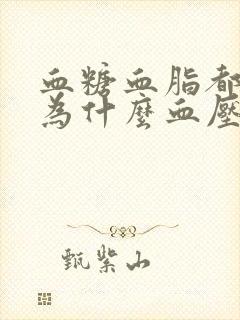 血糖血脂都
為什麼血壓
甄紫山